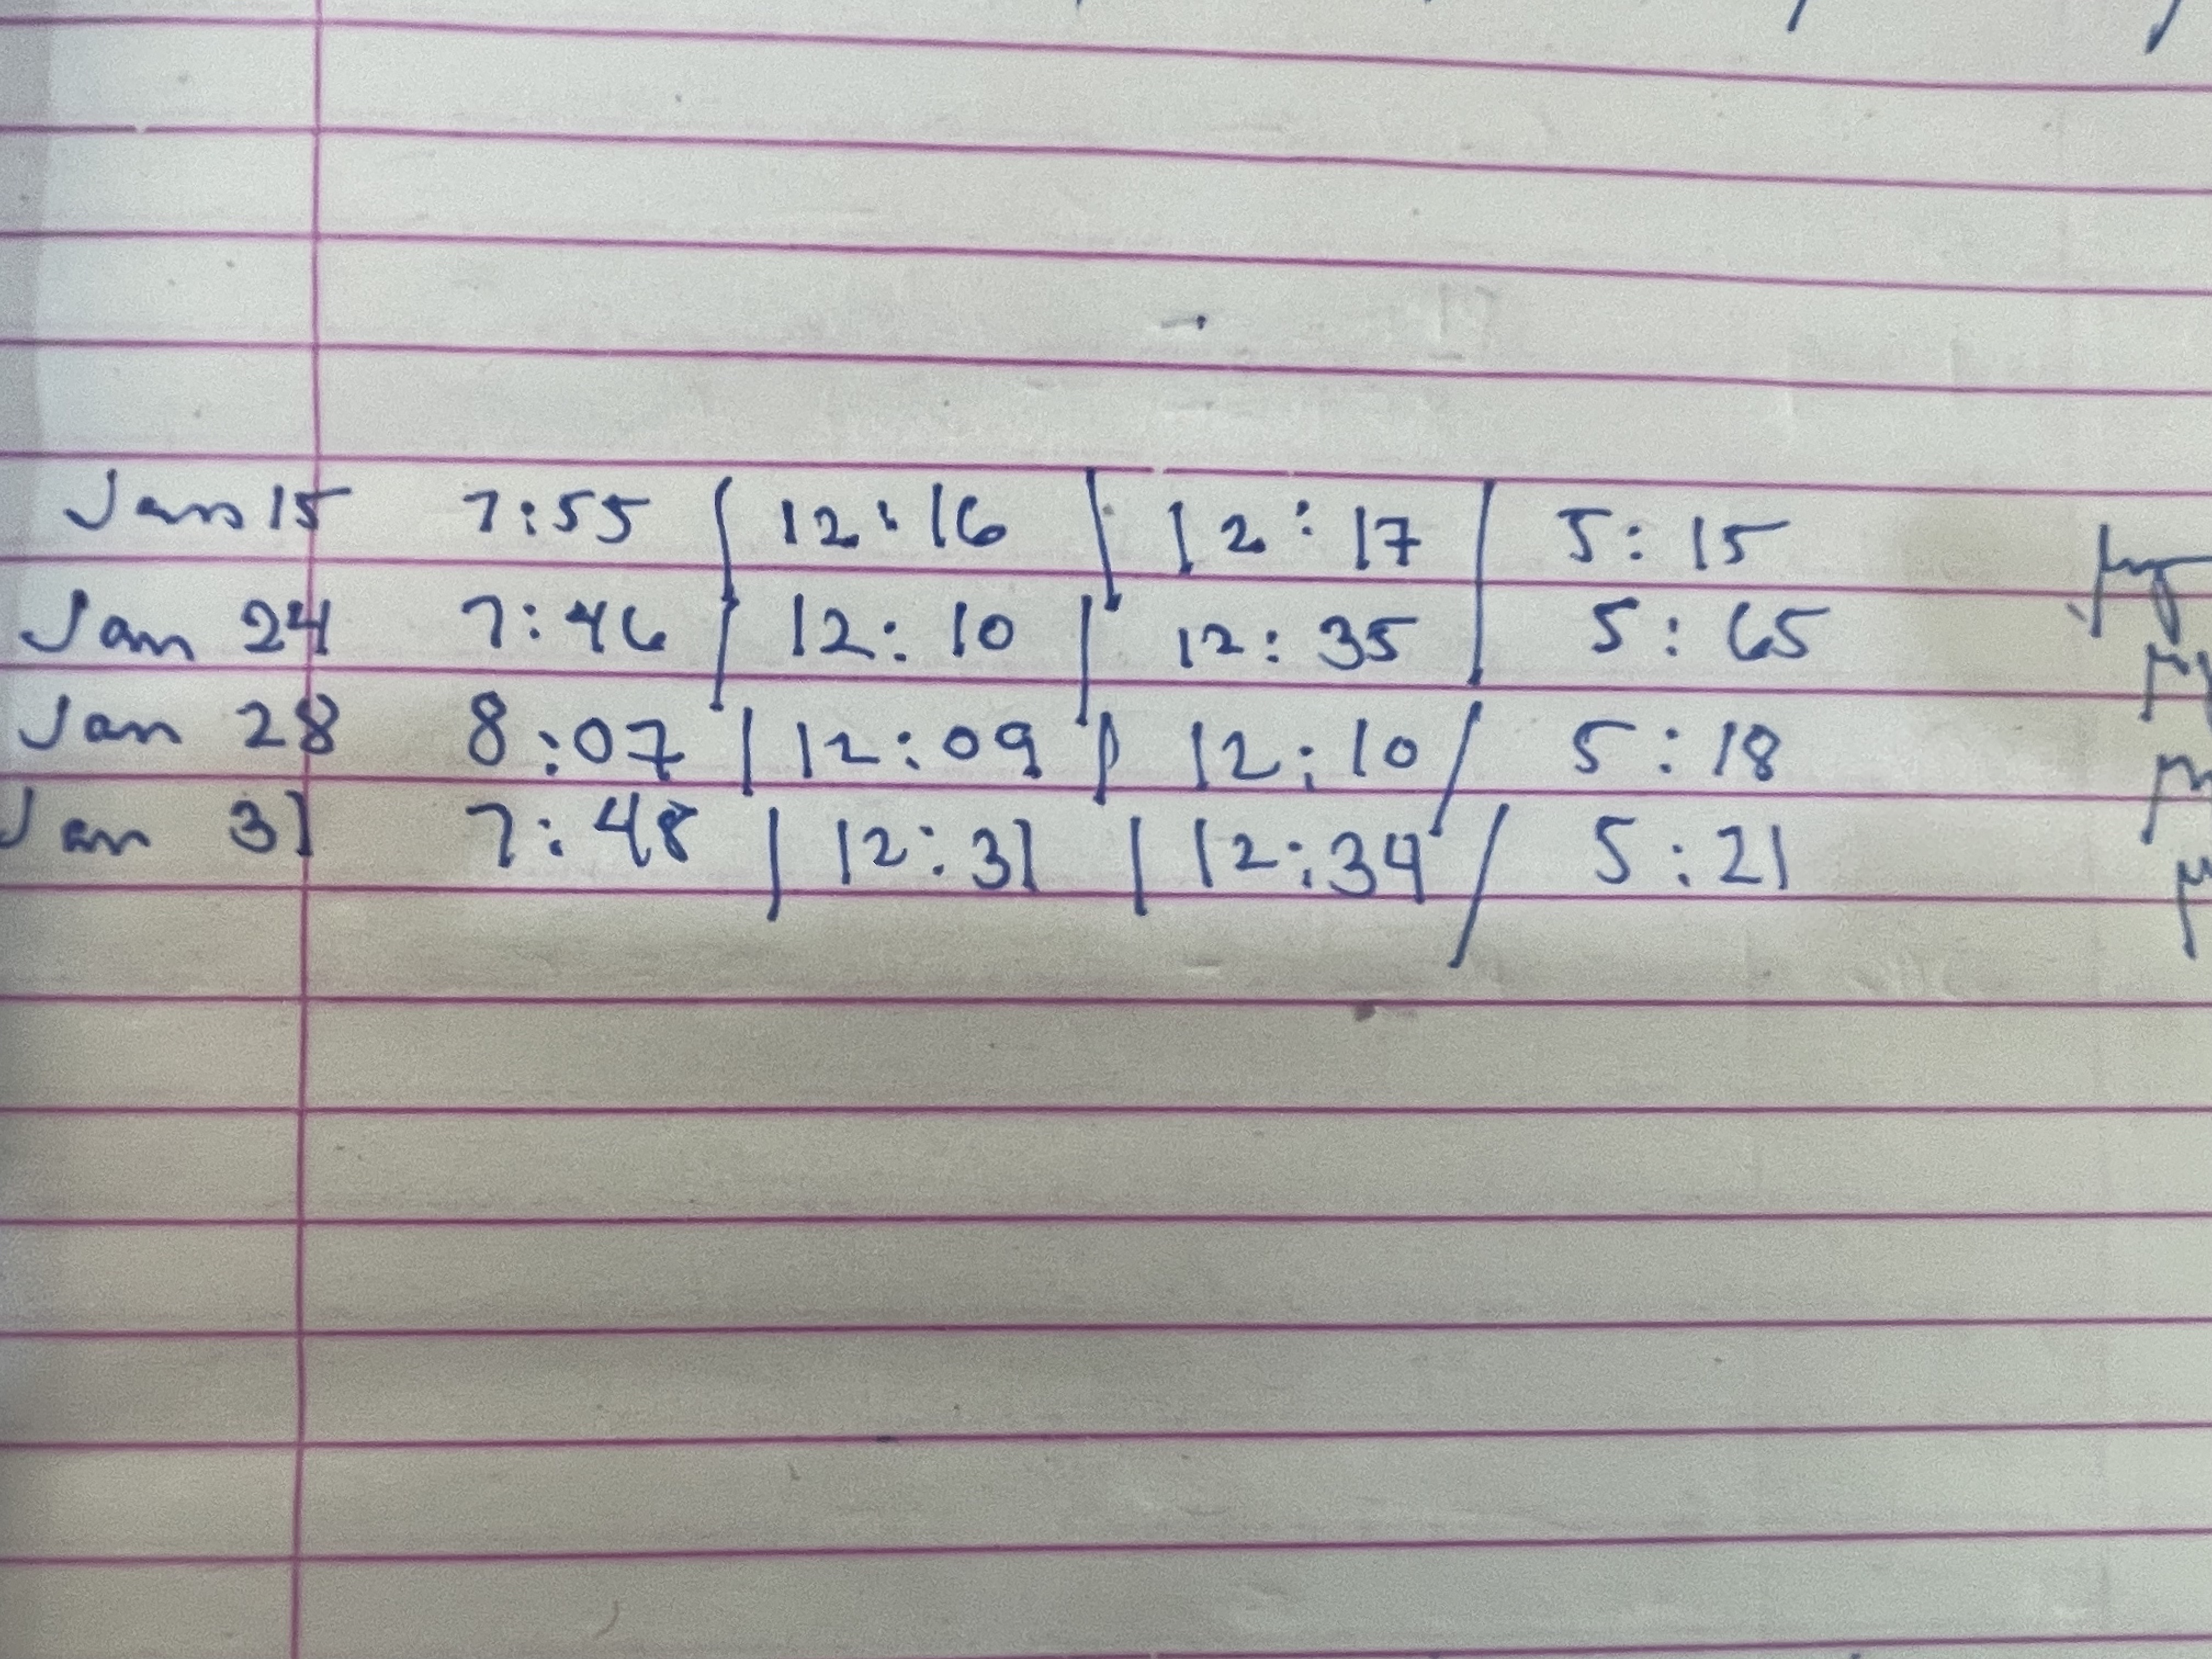 Jan 15 7:55 | 12:16 | 12:17 | 5:15
Jan 24 7:46 | 12:10 | 12:35 | 5:65
Jan 28 8:07 | 12:09 | 12:10 / 5:18
Jan 31 7:48 | 12:31 | 12:34 / 5:21